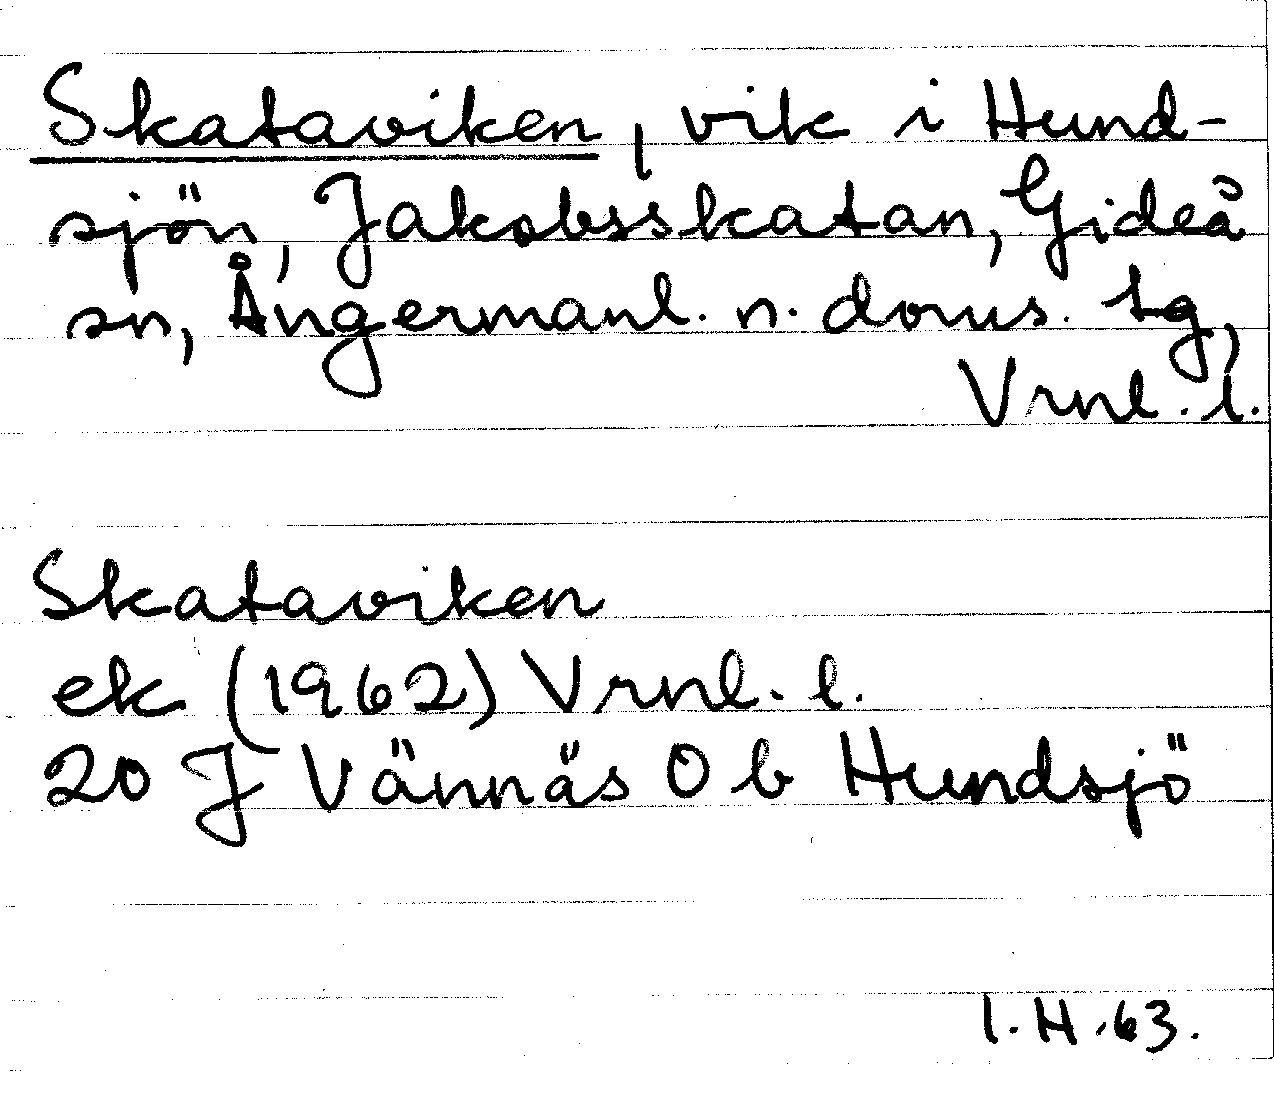 Skataviken, vik i Hund-
sjön, Jakobsskatan, Gideå
sn, Ångermanl. n. doms. tg,
Vrnl. l.
Skataviken
ek (1962) Vrnl. l.
20 J Vännäs 0 b Hundsjö
I.H.63.